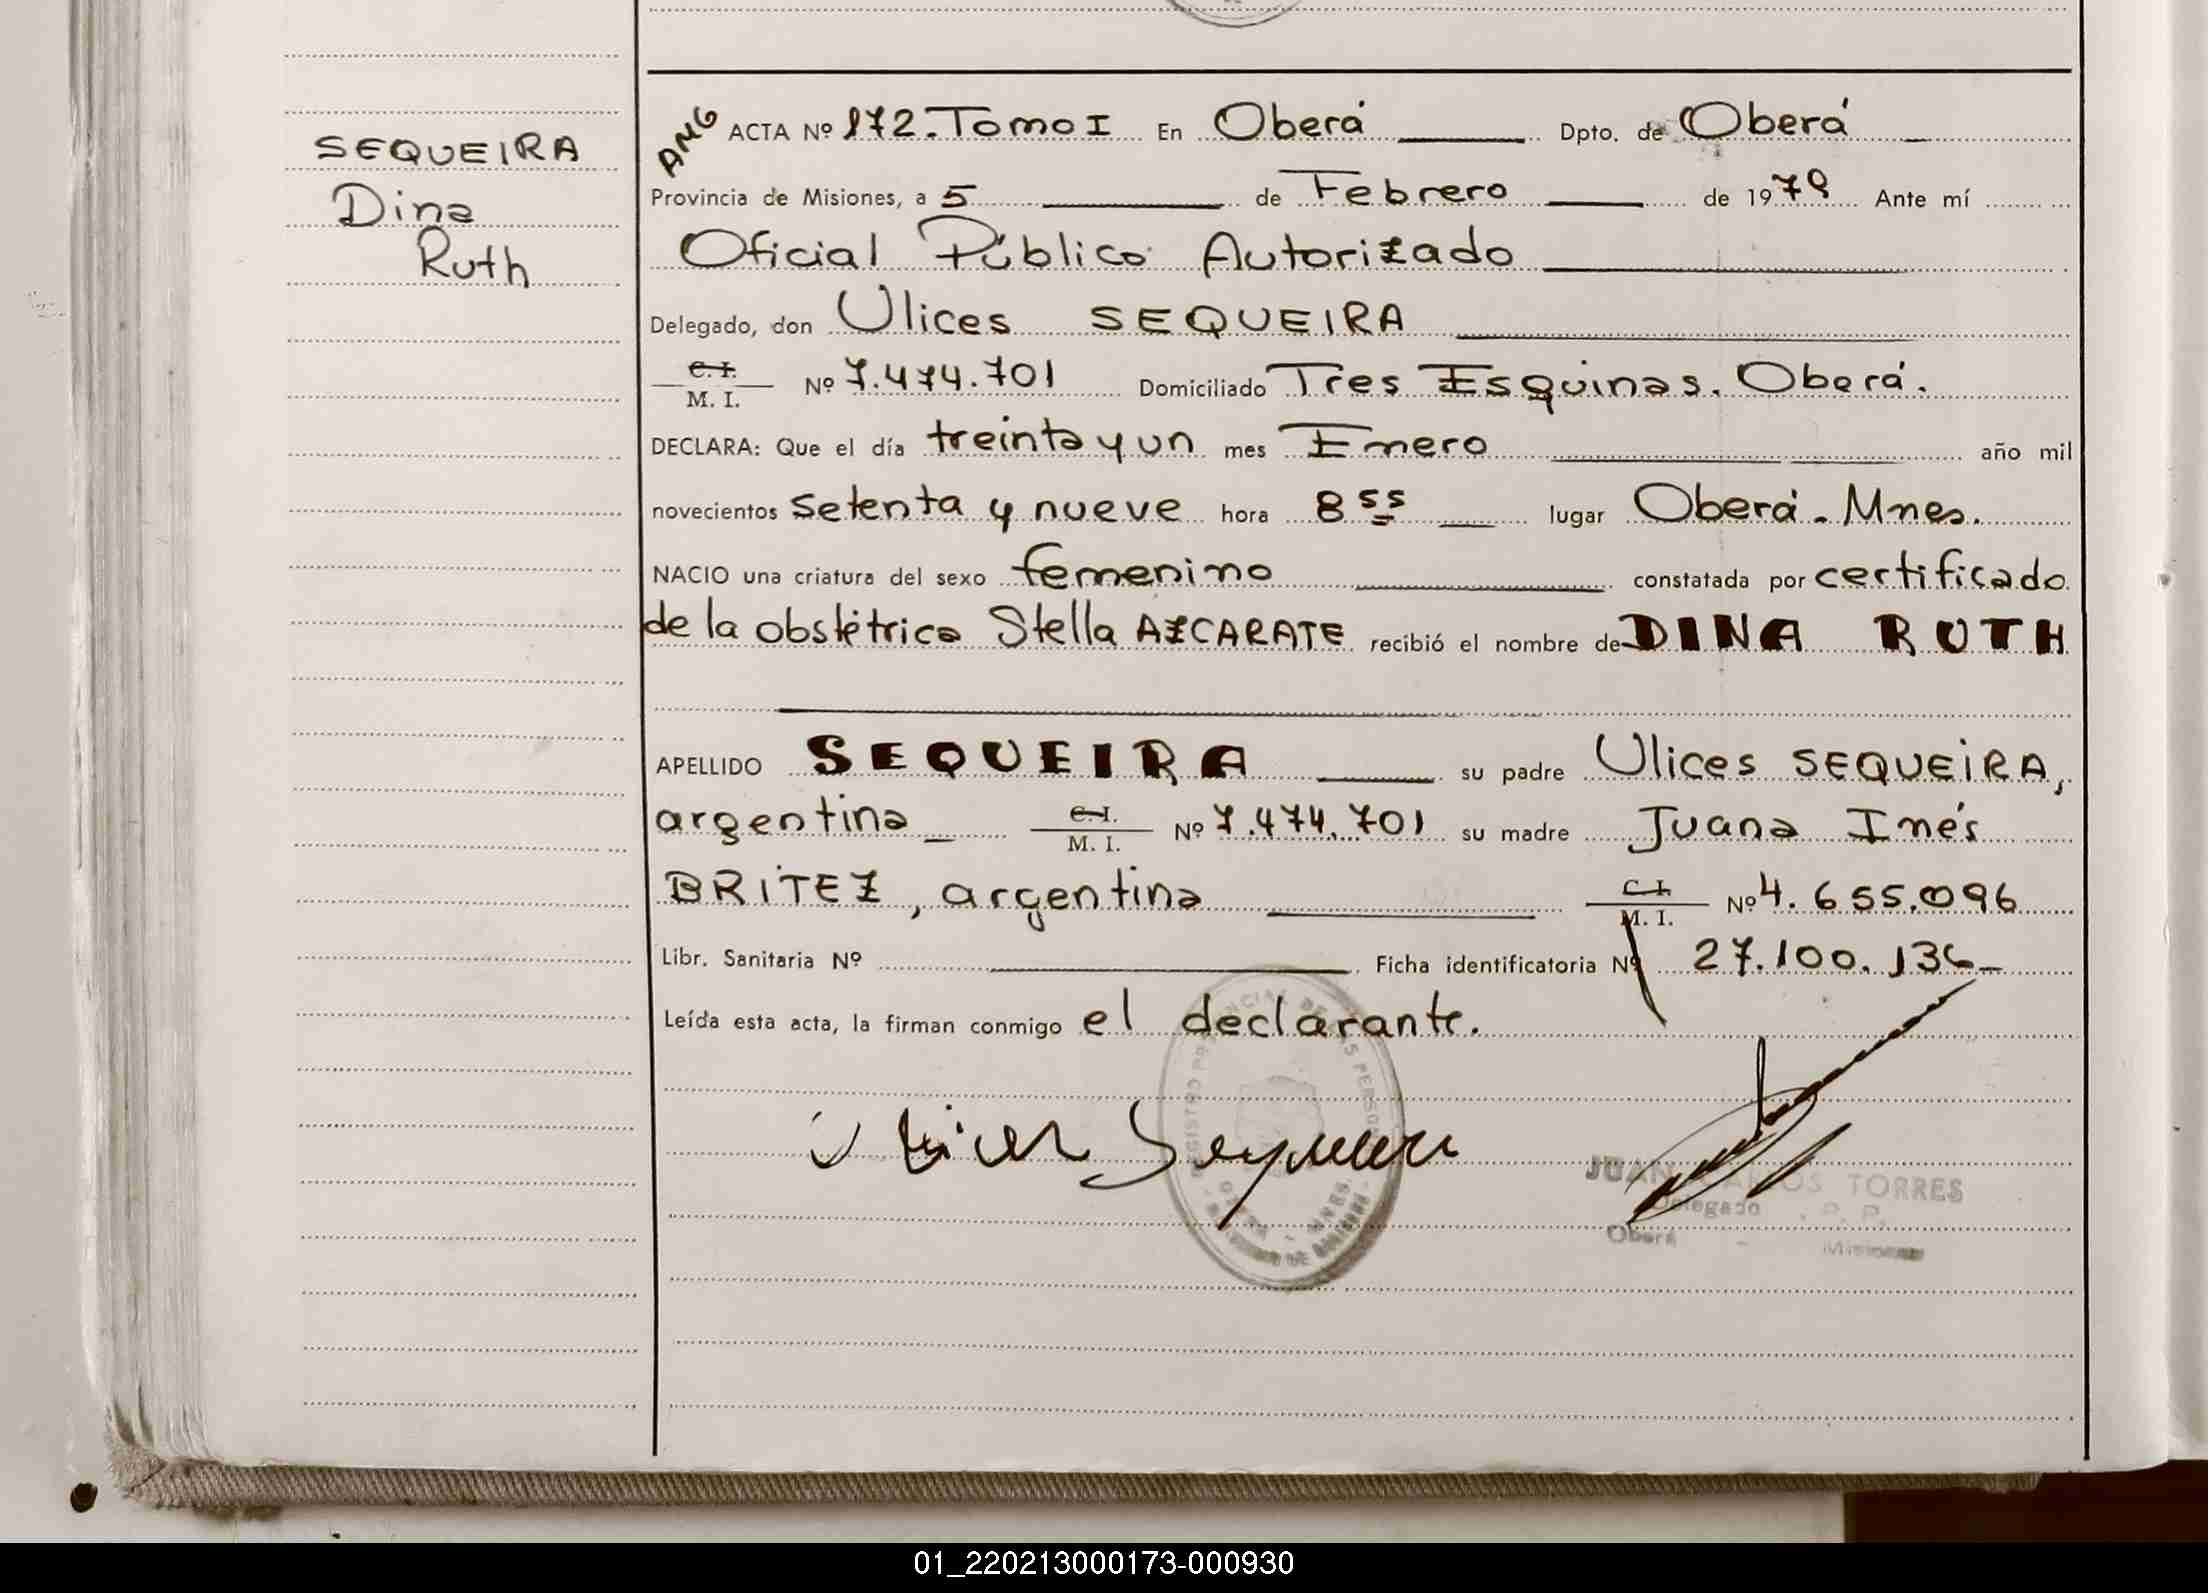 SEQUEIRA
Dina
Ruth
ANG
ACTA Nº 172. Tomo I En Oberá Dpto. de Oberá
Provincia de Misiones, a 5 de Febrero de 1979 Ante mí
Oficial Público Autorizado
Delegado, don Ulices SEQUEIRA
C. I.
M. I. Nº 7.474.701 Domiciliado Tres Esquinas. Oberá.
DECLARA: Que el día treinta y un mes Enero año mil
novecientos setenta y nueve hora 8 55 lugar Oberá - Mnes.
NACIO una criatura del sexo femenino constatada por certificado
de la obstétrica Stella AZCARATE recibió el nombre de DINA RUTH
APELLIDO SEQUEIRA su padre Ulices SEQUEIRA,
argentina C. I.
M. I. Nº 7.474.701 su madre Juana Inés
BRITEZ, argentina C. I.
M. I. Nº 4.655.096
Libr. Sanitaria Nº Ficha identificatoria Nº 27.100.136
Leída esta acta, la firman conmigo el declarante.
Ulices Sequeira
REGISTRO PROVINCIAL DE LAS PERSONAS
OBERA - MNES.
JUAN CARLOS TORRES
Delegado R. P. P.
Oberá - Misiones
01_220213000173-000930